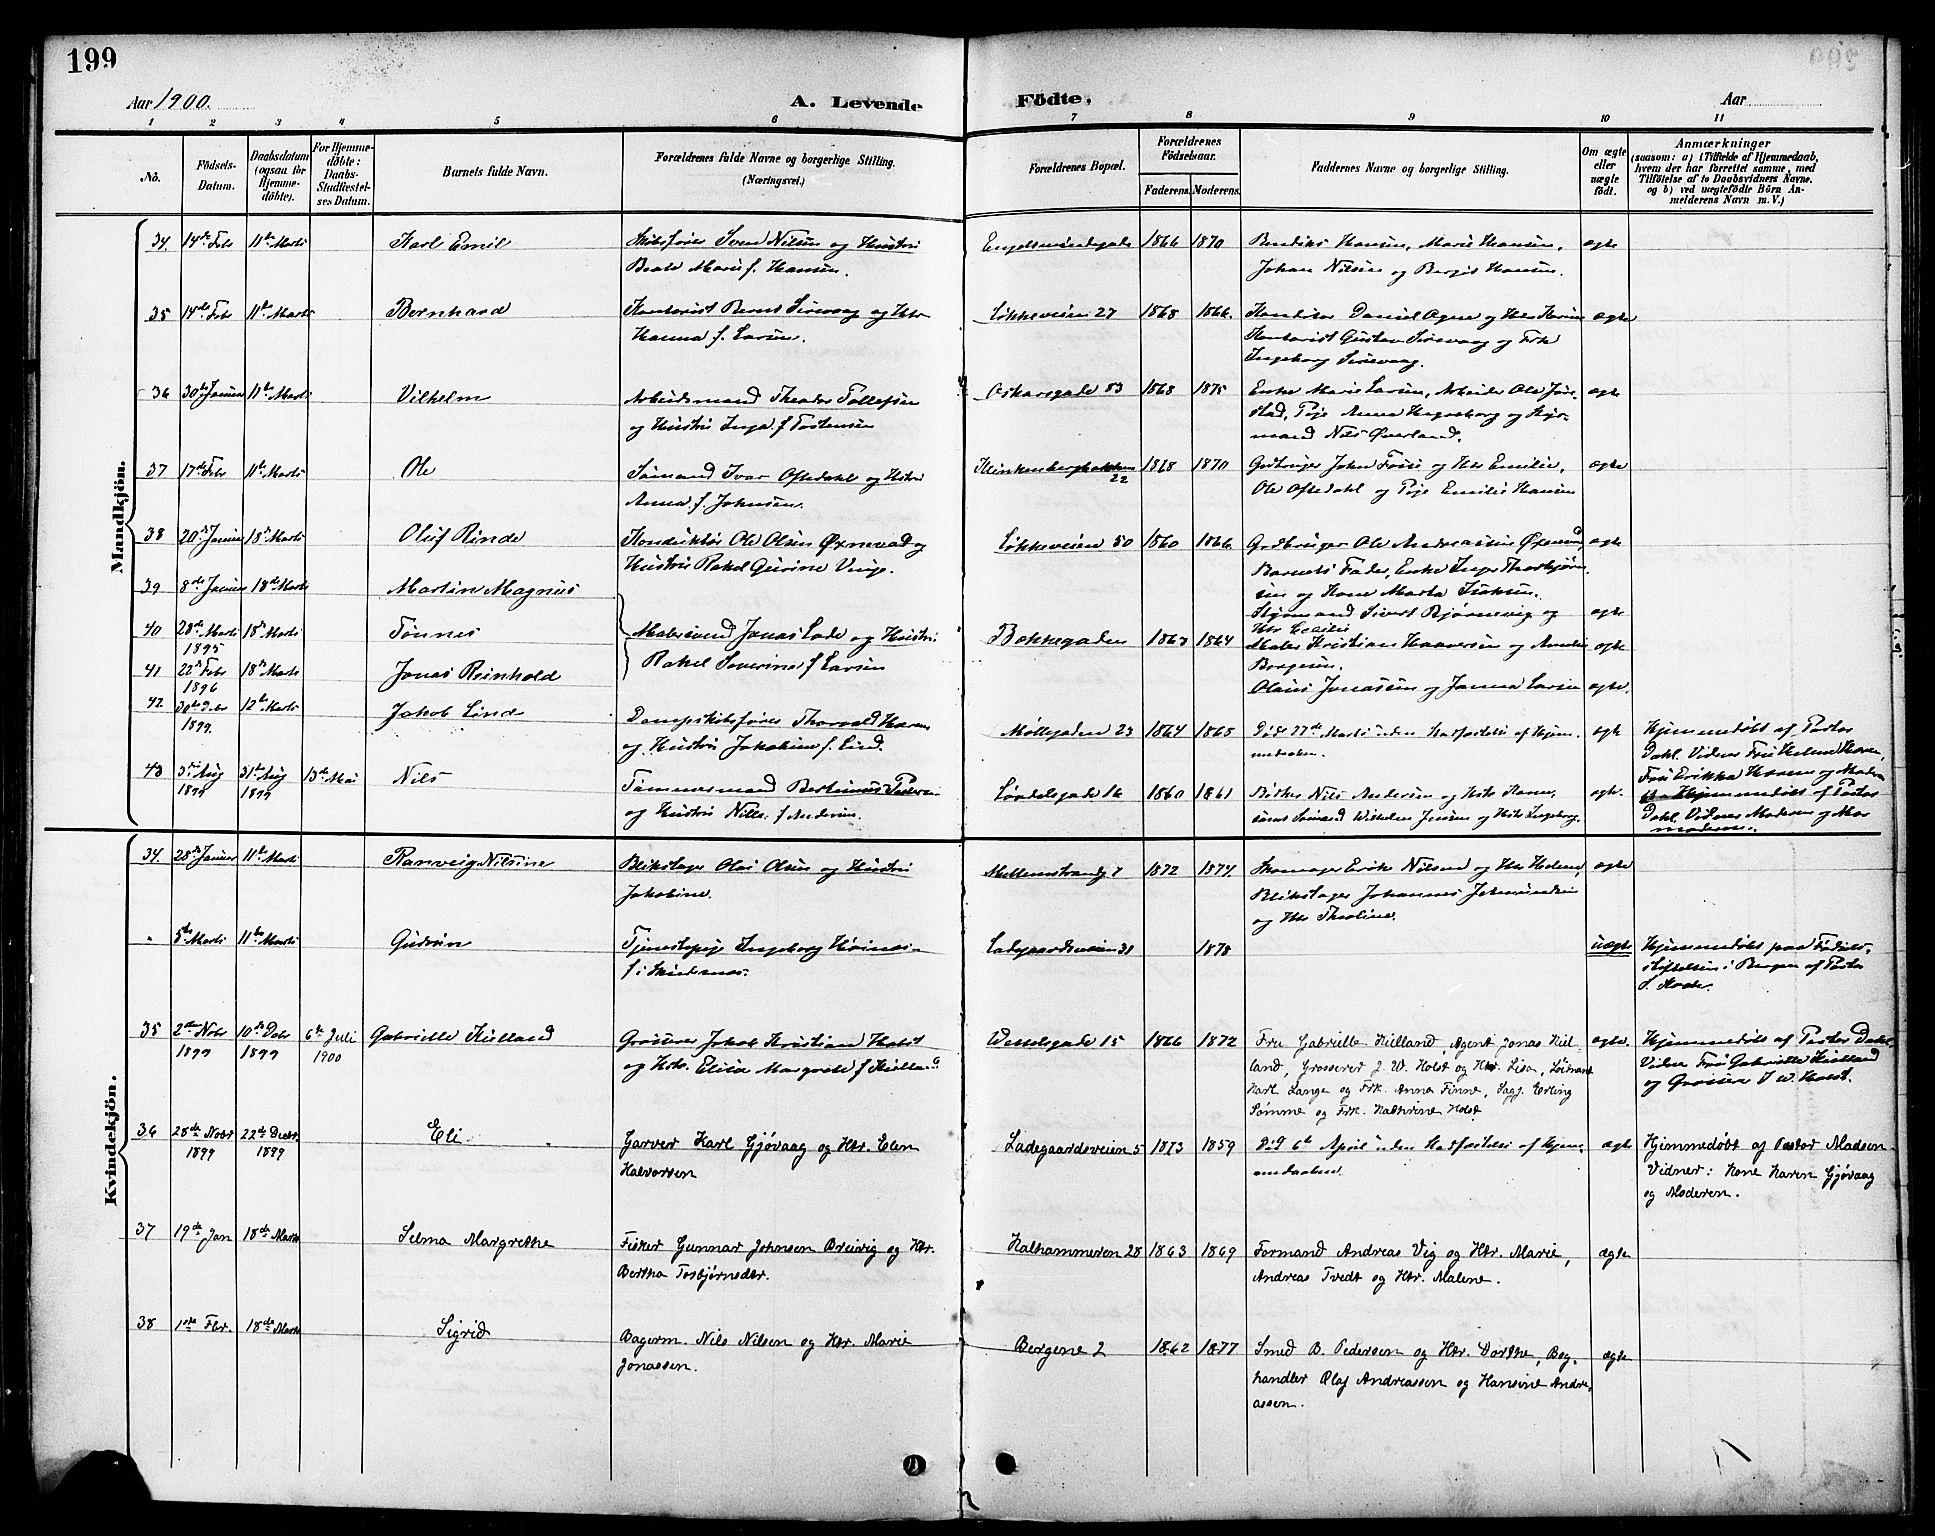 199
Aar 1900.
A. Levende
Födte.
Aar
1 2 3 4 5 6 7 8 9 10 11
No.
Födsels-
Datum.
Daabsdatum
(ogsaa for
Hjemme-
döbte).
For Hjemme-
döbte:
Daabs-
Stadfæstel-
ses Datum.
Barnets fulde Navn.
Forældrenes fulde Navne og borgerlige Stilling.
(Næringsvei.)
Forældrenes Bopæl.
Forældrenes
Födselsaar.
Faderens. Moderens.
Faddernes Navne og borgerlige Stilling.
Om ægte
eller
uægte
födt.
Anmærkninger
(saasom: a) i Tilfælde af Hjemmedaab,
hvem der har forrettet samme, med
Tilföielse af to Daabsvidners Navne.
og b) ved uægtefödte Börn An-
melderens Navn m. V.)
Mandkjön.
34. 14de Febr 11te Marts Karl Emil Skibsfører Sven Nilsen og Hustru
Beate Marie f. Hansen.
1866 1870 Bendiks Hansen, Marie Hansen,
Johan Nilsen og Bergit Hansen. ægte
35 14de Febr 11te Marts Bernhard Kontorist Bernt Sirevaag og Htr
Hanna f. Larsen.
Løkkeveien 27 1868 1866. Konditor Daniel Ogne og Htr Karine
Kontorist Gustav Sirevaag og Frk
Ingeborg Sirevaag. ægte
36 30te Januar 11te Marts Vilhelm Arbeidsmand Theodor Tollefsen
og Hustru Inga f. Torstensen
Oskarsgade 53 1868 1875 Enke Marie Larsen, Arbeider Ole Jør-
stad, Pige Anna Hognaborg og Styr-
mand Nils Øverland. ægte
37 17de Febr 11te Marts Ole Sømand Ivar Oftedahl og Hstr
Anna f. Johnsen.
Klinkenbergbakken
22 1868 1870 Gdbruger John Foss og Htr Emilie,
Ole Oftedahl og Pige Emilie Hansen ægte
38 20de Januar 18de Marts Oluf Rinde Konduktør Ole Olsen Øxnevad og
Hustru Rakel Gurine Vinje.
Løkkeveien 50 1860 1866. Grdbruger Ole Andreassen Øxnevad
Barnets Fader, Enke Inger Thorbjørn-
sen og Kone Marta Isaksen. ægte
39 8de Januar 18de Marts Martin Magnus
Styrmand Sivert Bjørnevig og
Htr Cecilie ægte
40 28de Marts 18de Marts
1895 Tønnes Malersvend Jonas Lode og Hustru
Rakel Severine f. Larsen
Bakkegaden 1863 1864 Maler Kristian Haaversen og Amalie
Borgesen. ægte
41 22de Febr 18de Marts
1896 Jonas Reinhold
Olaus Jonassen og Janna Larsen ægte.
42 30te Debr 12te Marts
1899. Jakob Lind Dampskibsfører Thorvald Haven
og Hustru Jakobine f. Lind.
Møllegaden 23 1864 1865 Død 27de Marts uden Stadfæstelse af Hjem-
medaaben. ægte Hjemmedøbt af Pastor
Dahl. Vidner Fru Helene Haven,
Fru Erikka Haven og Moderen
43 3die Aug 31te Aug 13de Mai
1899 1899 Nils Tømmermand Bertinius Pedersen
og Hustru Nille f. Andersen.
Løvdalsgade 16 1860 1861 Bødker Nils Andersen og Hstr Karen,
samt Sømand Wilhelm Jensen og Hstr Ingeborg. ægte. Hjemmedøbt af Pastor
Dahl. Vidner Moderen og Mor
moderen.
Kvindekjön.
34. 28de Januar 11te Marts Ranveig Nilsine Blikslager Olai Olsen og Hustru
Jakobine.
Mellemstrandg 7 1872 1874. Skomager Erik Nilsen og Htr Helene,
Blikslager Johannes Johnsen
og Htr Theoline. ægte
" 5te Marts 11te Marts Gudrun Tjenestepige Ingeborg Høines
f. i Skudesnes.
Ladegaardsveien 31 1878 uægte Hjemmedøbt paa Fødsels-
stiftelsen i Bergen af Pastor
S. Koder.
35 2den Novbr 10de Debr 6te Juli
1899 1899 1900 Gabrielle Kielland Grosserer Jakob Kristian Holst
og Htr. Elisa Margrete f. Kielland
Wesselsgade 15 1866 1872 Fru Gabrielle Kielland, Agent Jonas Kiel-
land, Grosserer J. W. Holst og Htr. Lisa, Løitnant
Karl Lange og Frk. Anna Finne, Sagf. Erling
Sømme og Frk. Kathrine Holst ægte. Hjemmedøbt af Pastor Dahl.
Vidner Fru Gabrielle Kielland
og Grosserer J. W. Holst.
36 28de Novbr 22de Decbr.
1899 1899 Eli Garver Karl Gjøvaag og Htr. Elen
Halvorsen
Ladegaardsveien 5 1873 1859 Død 6te April uden Stadfæstelse af Hjem-
medaaben. ægte Hjemmedøbt af Pastor Madsen
Vidner: Kone Karen Gjøvaag
og Moderen.
37 19de Jan 18de Marts Selma Margrethe Fisker Gunnar Johnsen Breivig og Htr.
Bertha Tosbjørnsdtr.
Kalhammeren 28 1863 1869 Formand Andreas Vig og Htr. Marie,
Andreas Tvedt og Htr. Malene. ægte
38 1ste Fbr. 18de Marts Sigrid Bagerm. Nils Nilsen og Htr. Marie
Jonassen.
Bergene 2 1862 1877 Smed B. Pedersen og Htr. Dorthe, Bog-
handler Olaf Andreassen og Hansine Andre-
assen. ægte